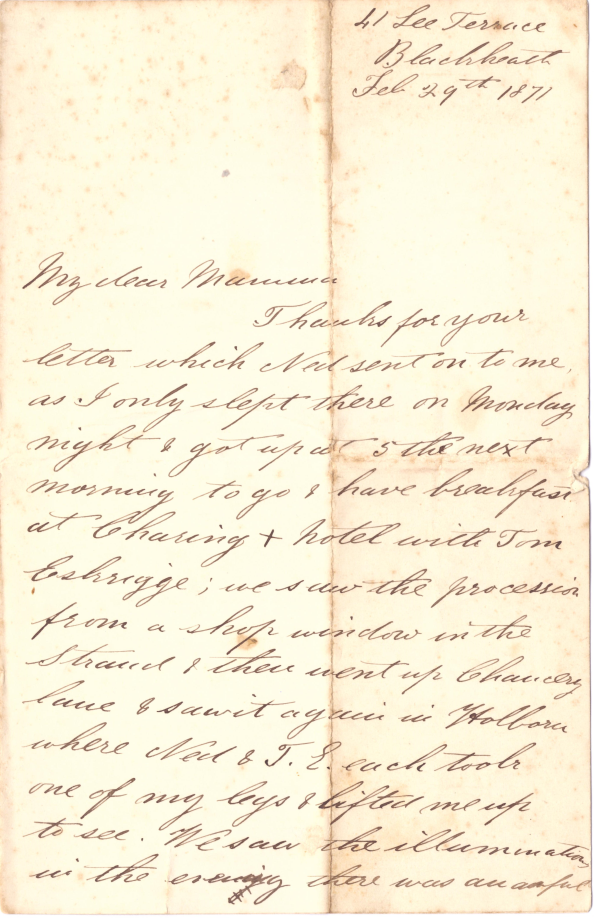 41 Lee Terrace
Blackheath
Feb 29th 1871
My dear Mamma
Thanks for your
letter which Ned sent on to me,
as I only slept there on Monday
night & got up at 5 the next
morning to go & have breakfast
at Charing + hotel with Tom
Eskrigge; we saw the procession
from a shop window in the
Strand & then went up Chancery
lane & saw it again in Holborn
where Ned & T. E. each took
one of my legs & lifted me up
to see. We saw the illuminations
in the evening there was an awful